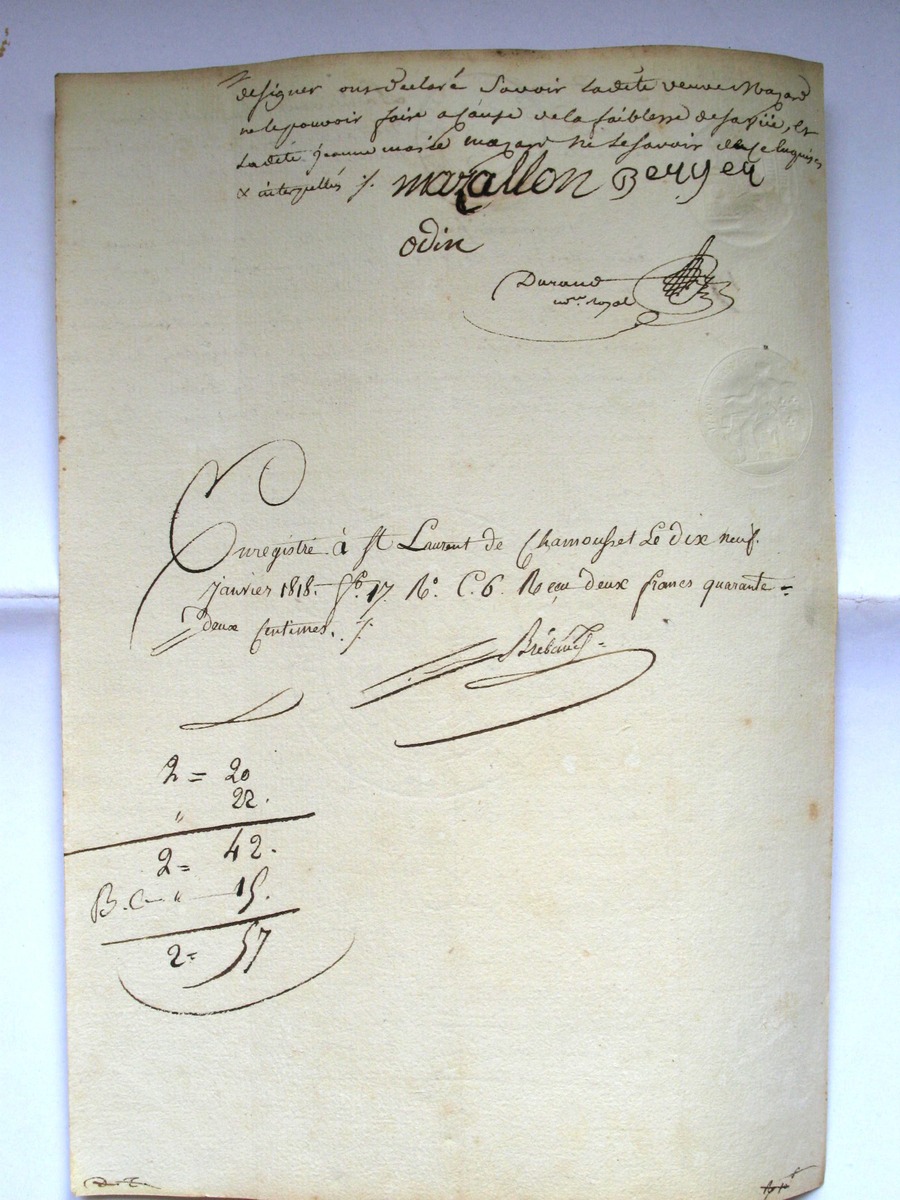 de signer ont déclaré savoir ladite veuve Mazard
ne le pouvoir faire a cause de la faiblesse de sa vüe, et
ladite jeanne marie mazard ne le savoir de ce enquises
& interpellés ·/·
mazallon Berger
odin
Durand
nore royal
Enregistré à St Laurent de Chamousset Le dix neuf.
Janvier 1818. fo. 17. Ro. C. 6. Reçu deux francs quarante =
deux Centimes. ·/·
2 = 20
" 22.
2 = 42.
B. C " 15.
2 = 57